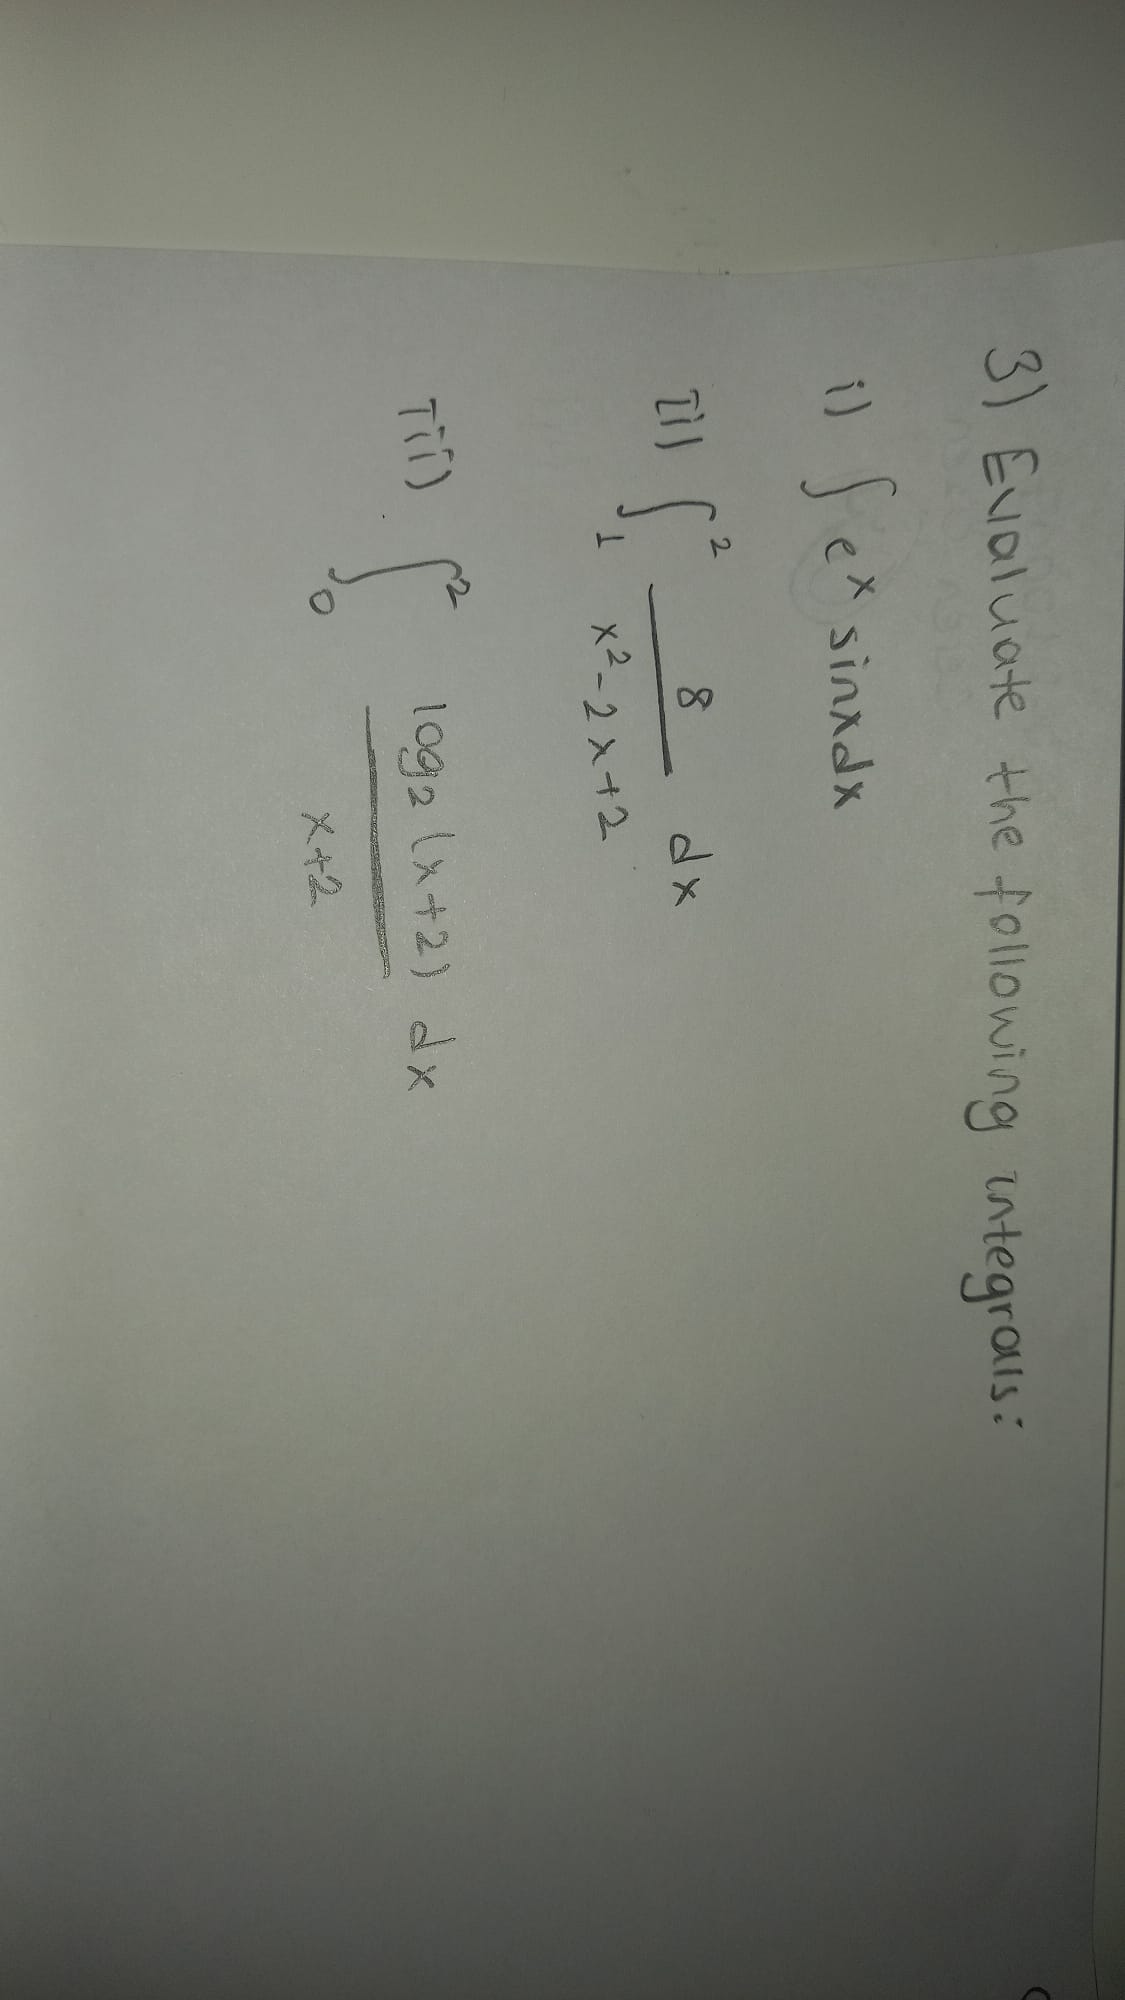 3) Evaluate the following integrals:
i) ∫ e^x sinx dx
ii) ∫_1^2 8/(x^2-2x+2) dx
iii) ∫_0^2 log_2(x+2)/(x+2) dx